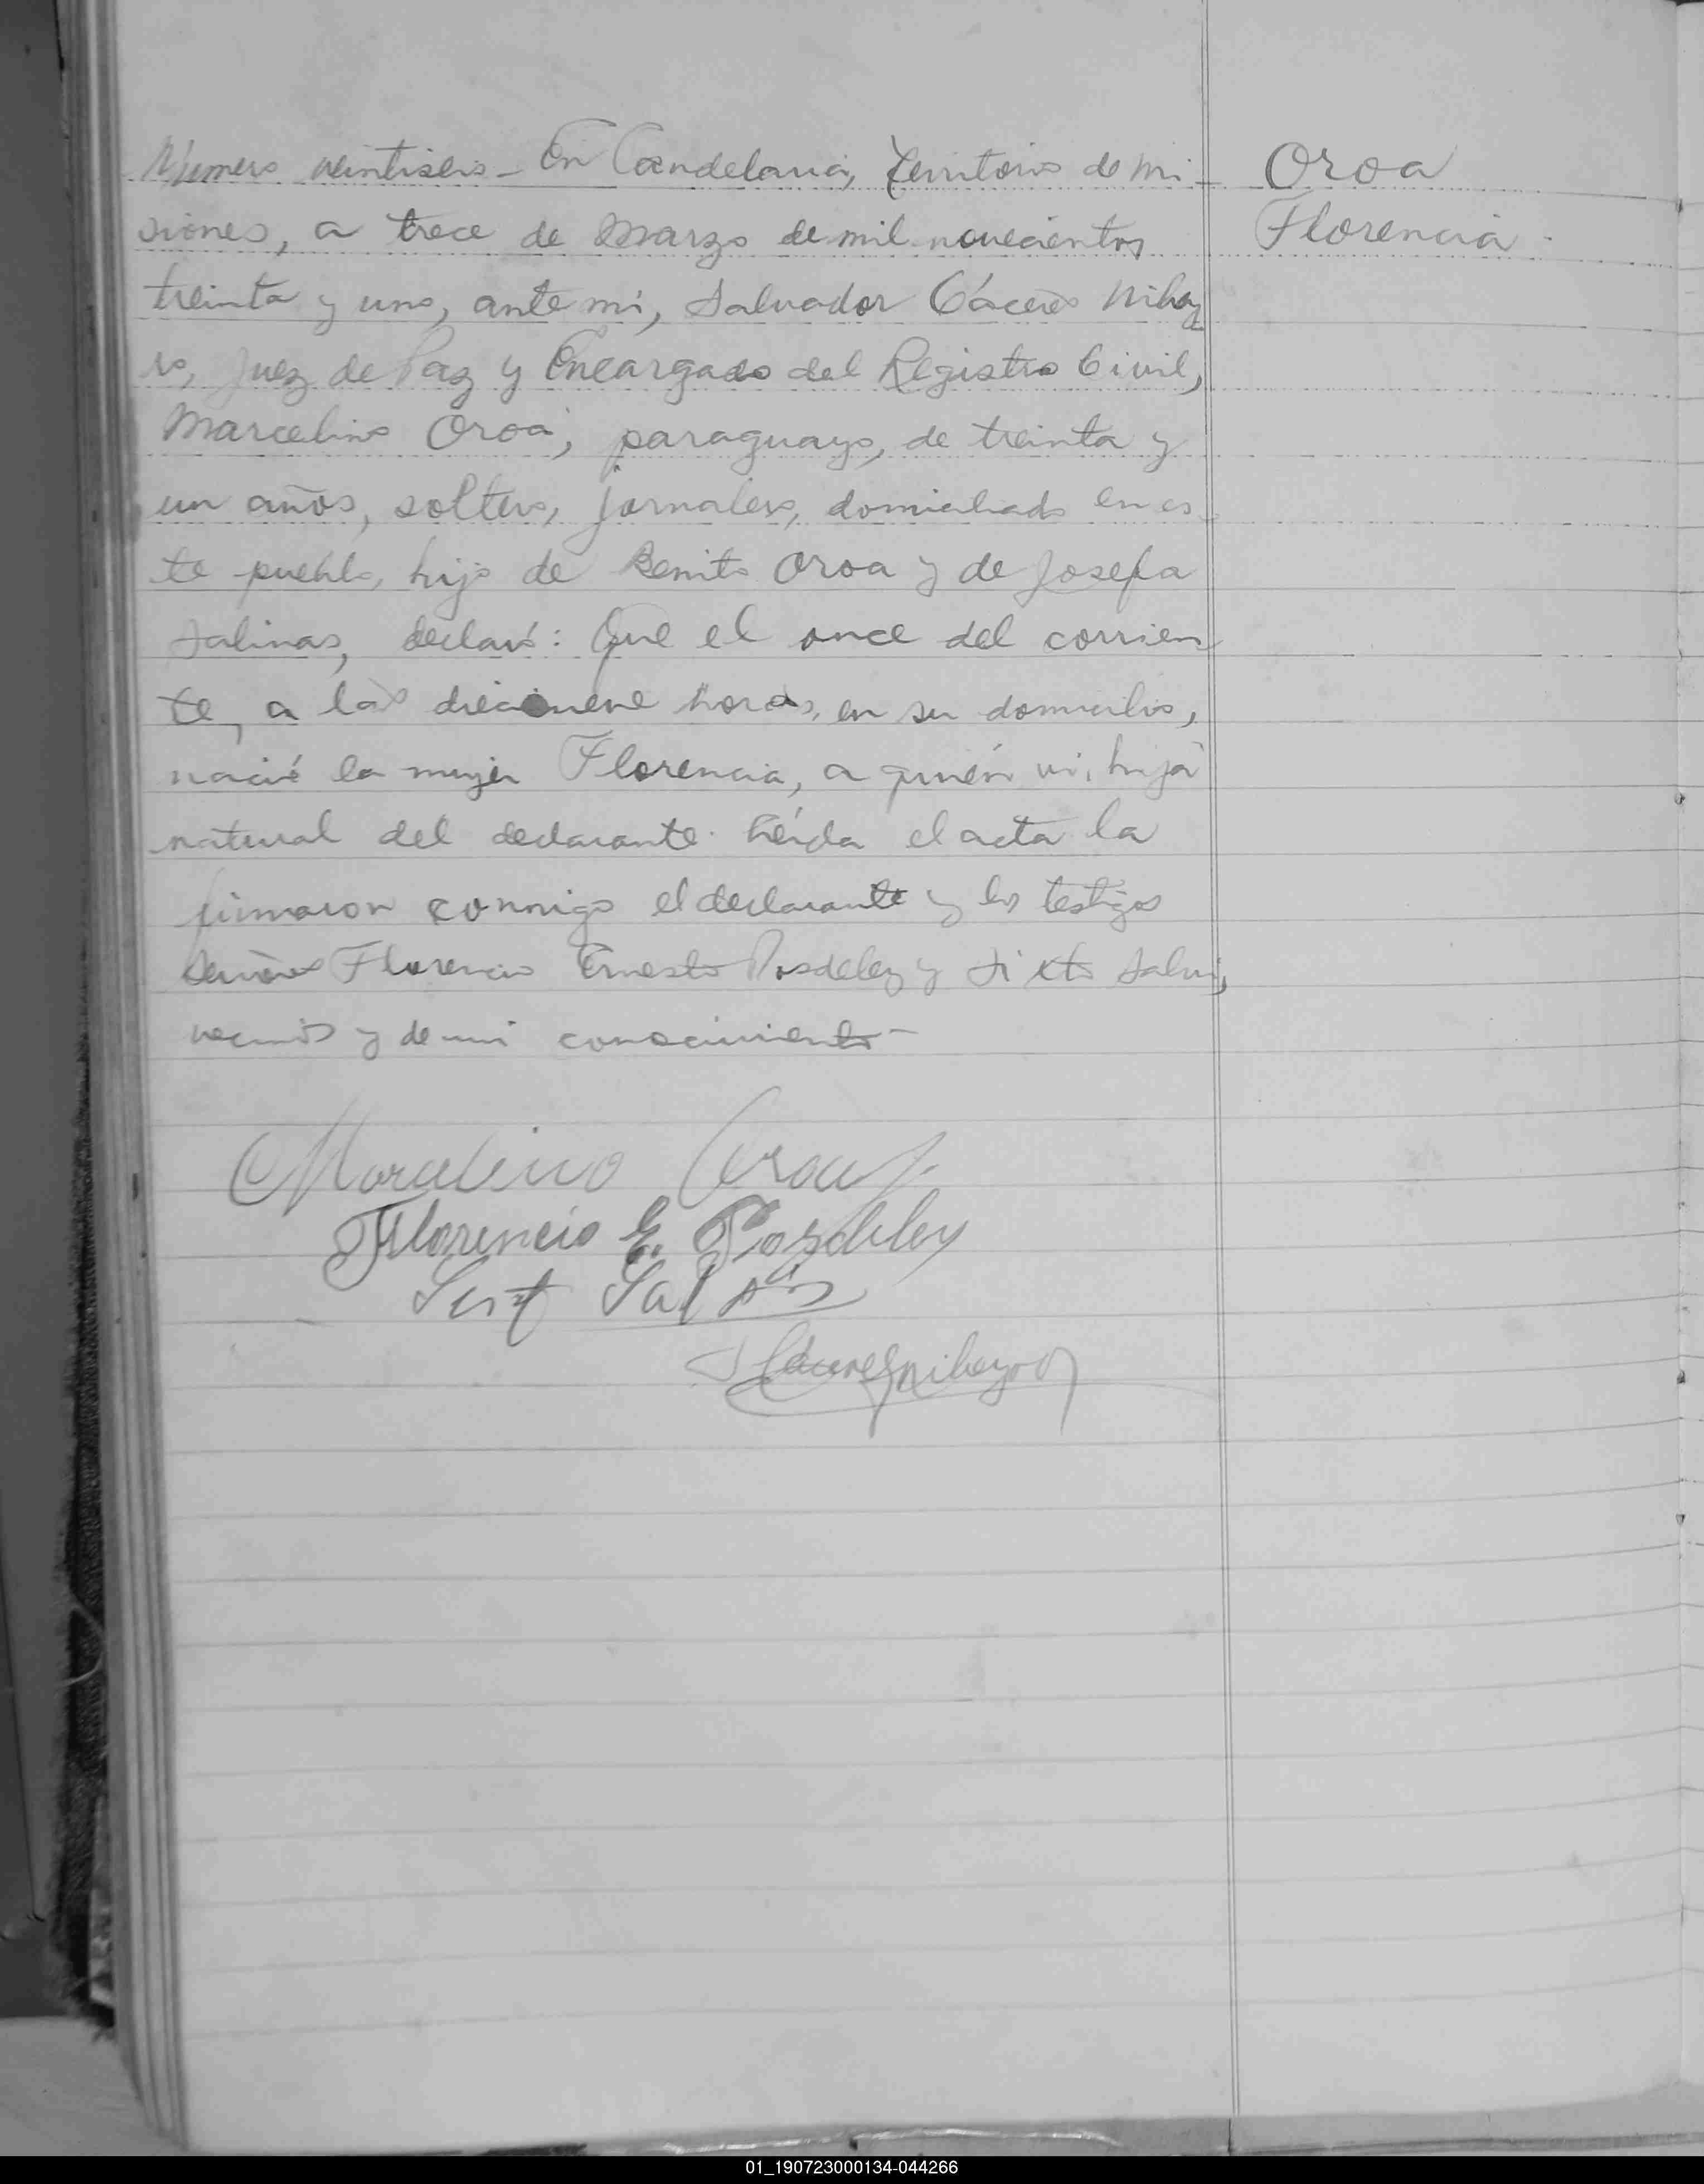 Número veintiseis - En Candelaria, Territorio de Mi-
siones, a trece de Marzo de mil novecientos
treinta y uno, ante mi, Salvador Cáceres Nihoy
ro, Juez de Paz y Encargado del Registro Civil,
Marcelino Oroá, paraguayo, de treinta y
un años, soltero, jornalero, domiciliado en es-
te pueblo, hijo de Benito Oroa y de Josefa
Salinas, declaró: Que el once del corrien
te, a las diecinueve horas, en su domicilio,
nació la mujer Florencia, a quién vi, hija
natural del declarante. Leída el acta la
firmaron conmigo el declarante y los testigos
señores Florencio Ernesto Posdeley y Sixto
vecinos y de mi conocimiento -
Oroa
Florencia.
Marcelino Oroa
Florencio E. Posdeley
01_190723000134-044266